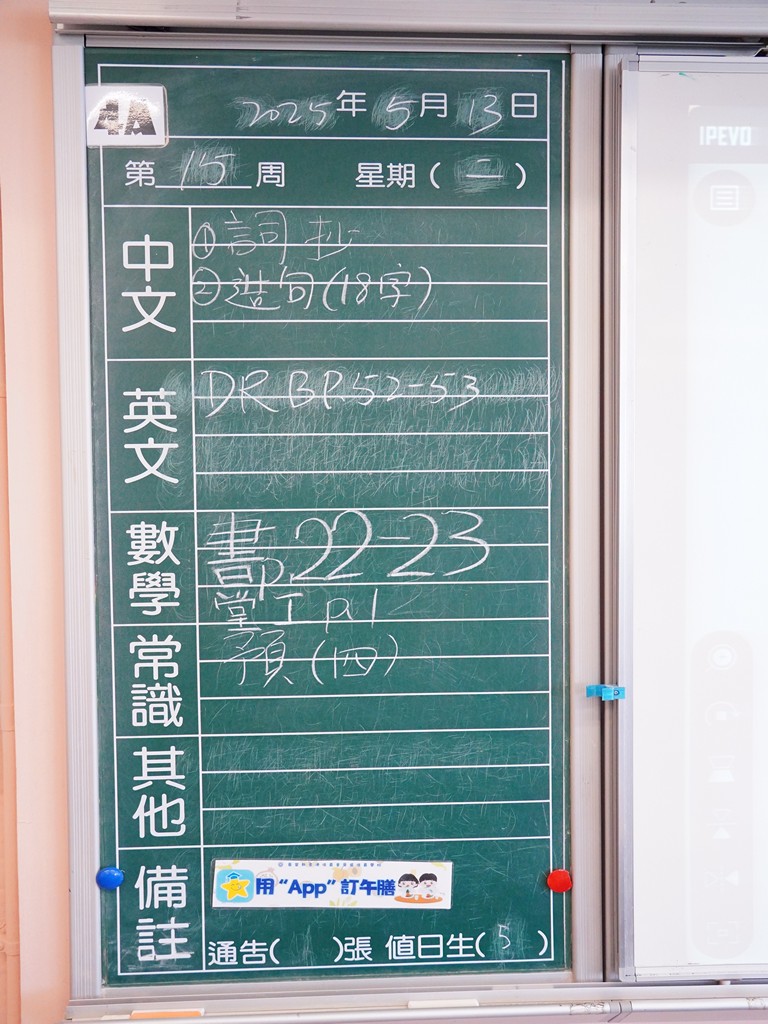 4A
2025年5月13日
第15周 星期(二)
中文
①詞抄
②造句(18字)
英文
DR BP.52-53
數學
書p.22-23
堂工p.1
常識
預(四)
其他
備註
用“App”訂午膳
通告( )張 值日生(5)
IPEVO